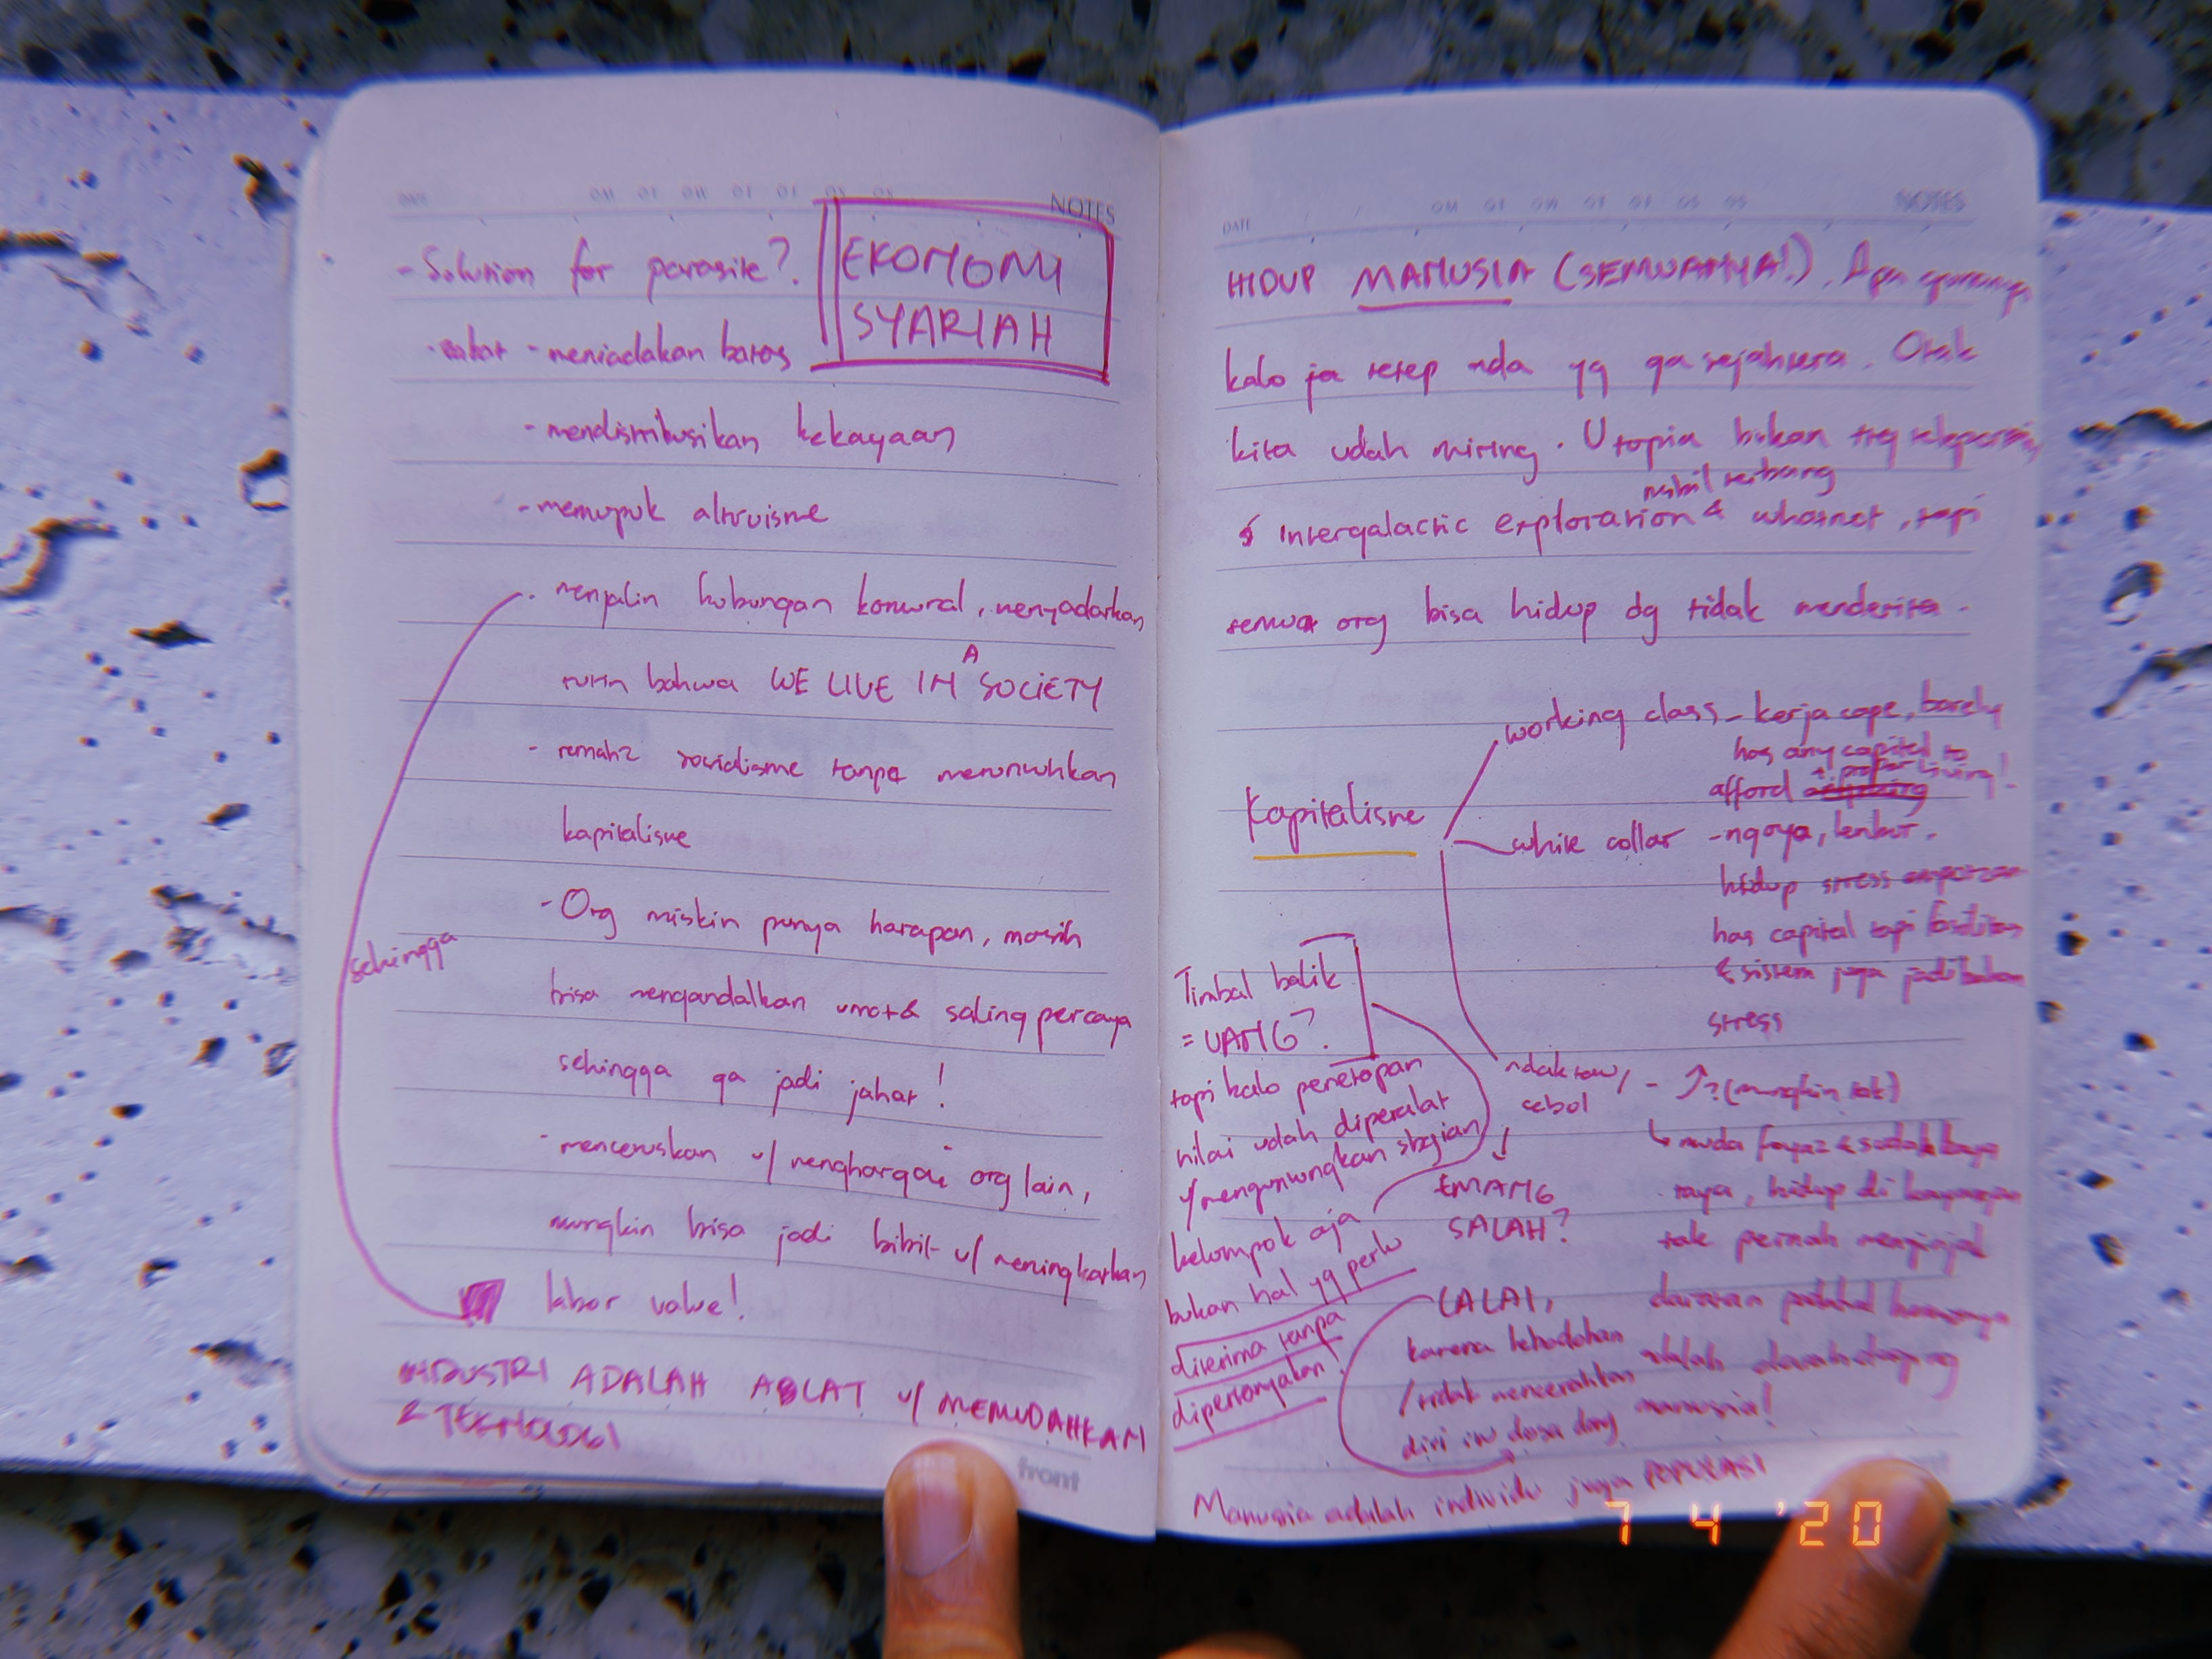 NOTES
- Solution for parasite?.
EKONOMI
SYARIAH
- zakat - meniadakan batas
- mendistribusikan kekayaan
- memupuk altruisme
- menjalin hubungan komunal, menyadarkan
bahwa WE LIVE IN A SOCIETY
- remah2 sosialisme tanpa meruntuhkan
kapitalisme
- Org miskin punya harapan, masih
bisa mengandalkan umat & saling percaya
sehingga ga jadi jahat!
- mencetuskan u/ menghargai org lain,
mungkin bisa jadi bibit u/ meningkatkan
labor value!
sehingga
INDUSTRI ADALAH ALAT u/ MEMUDAHKAN
& TEKNOLOGI
front
DATE
NOTES
HIDUP MANUSIA (SEMUANYA!). Apa gunanya
kalo ja tetep ada yg ga sejahtera. Otak
kita udah miring. Utopia bukan ttg teleportasi,
mobil terbang
& intergalactic exploration & whatnot, tapi
semua org bisa hidup dg tidak menderita.
Kapitalisme
working class - kerja cape, barely
has any capital to
afford a proper living!
white collar - ngoya, lembur.
hidup stress
has capital tapi fasilitas
& sistem juga jadi beban
stress
ndak tau/
cebol
- ? (mungkin tak)
muda foya2 & sudah kaya
raya, hidup di kayangan
tak pernah menginjak
daratan padahal
adalah
manusia!
Timbal balik
= UANG?
tapi kalo penetapan
nilai udah diperalat
u/ menguntungkan sbgian
kelompok aja
bukan hal yg perlu
diterima tanpa
dipertanyakan!
EMANG
SALAH?
LALAI,
karena kebodohan
/tidak mencerahkan
diri itu dosa dong
Manusia adalah individu juga POPULASI
7 4 '20